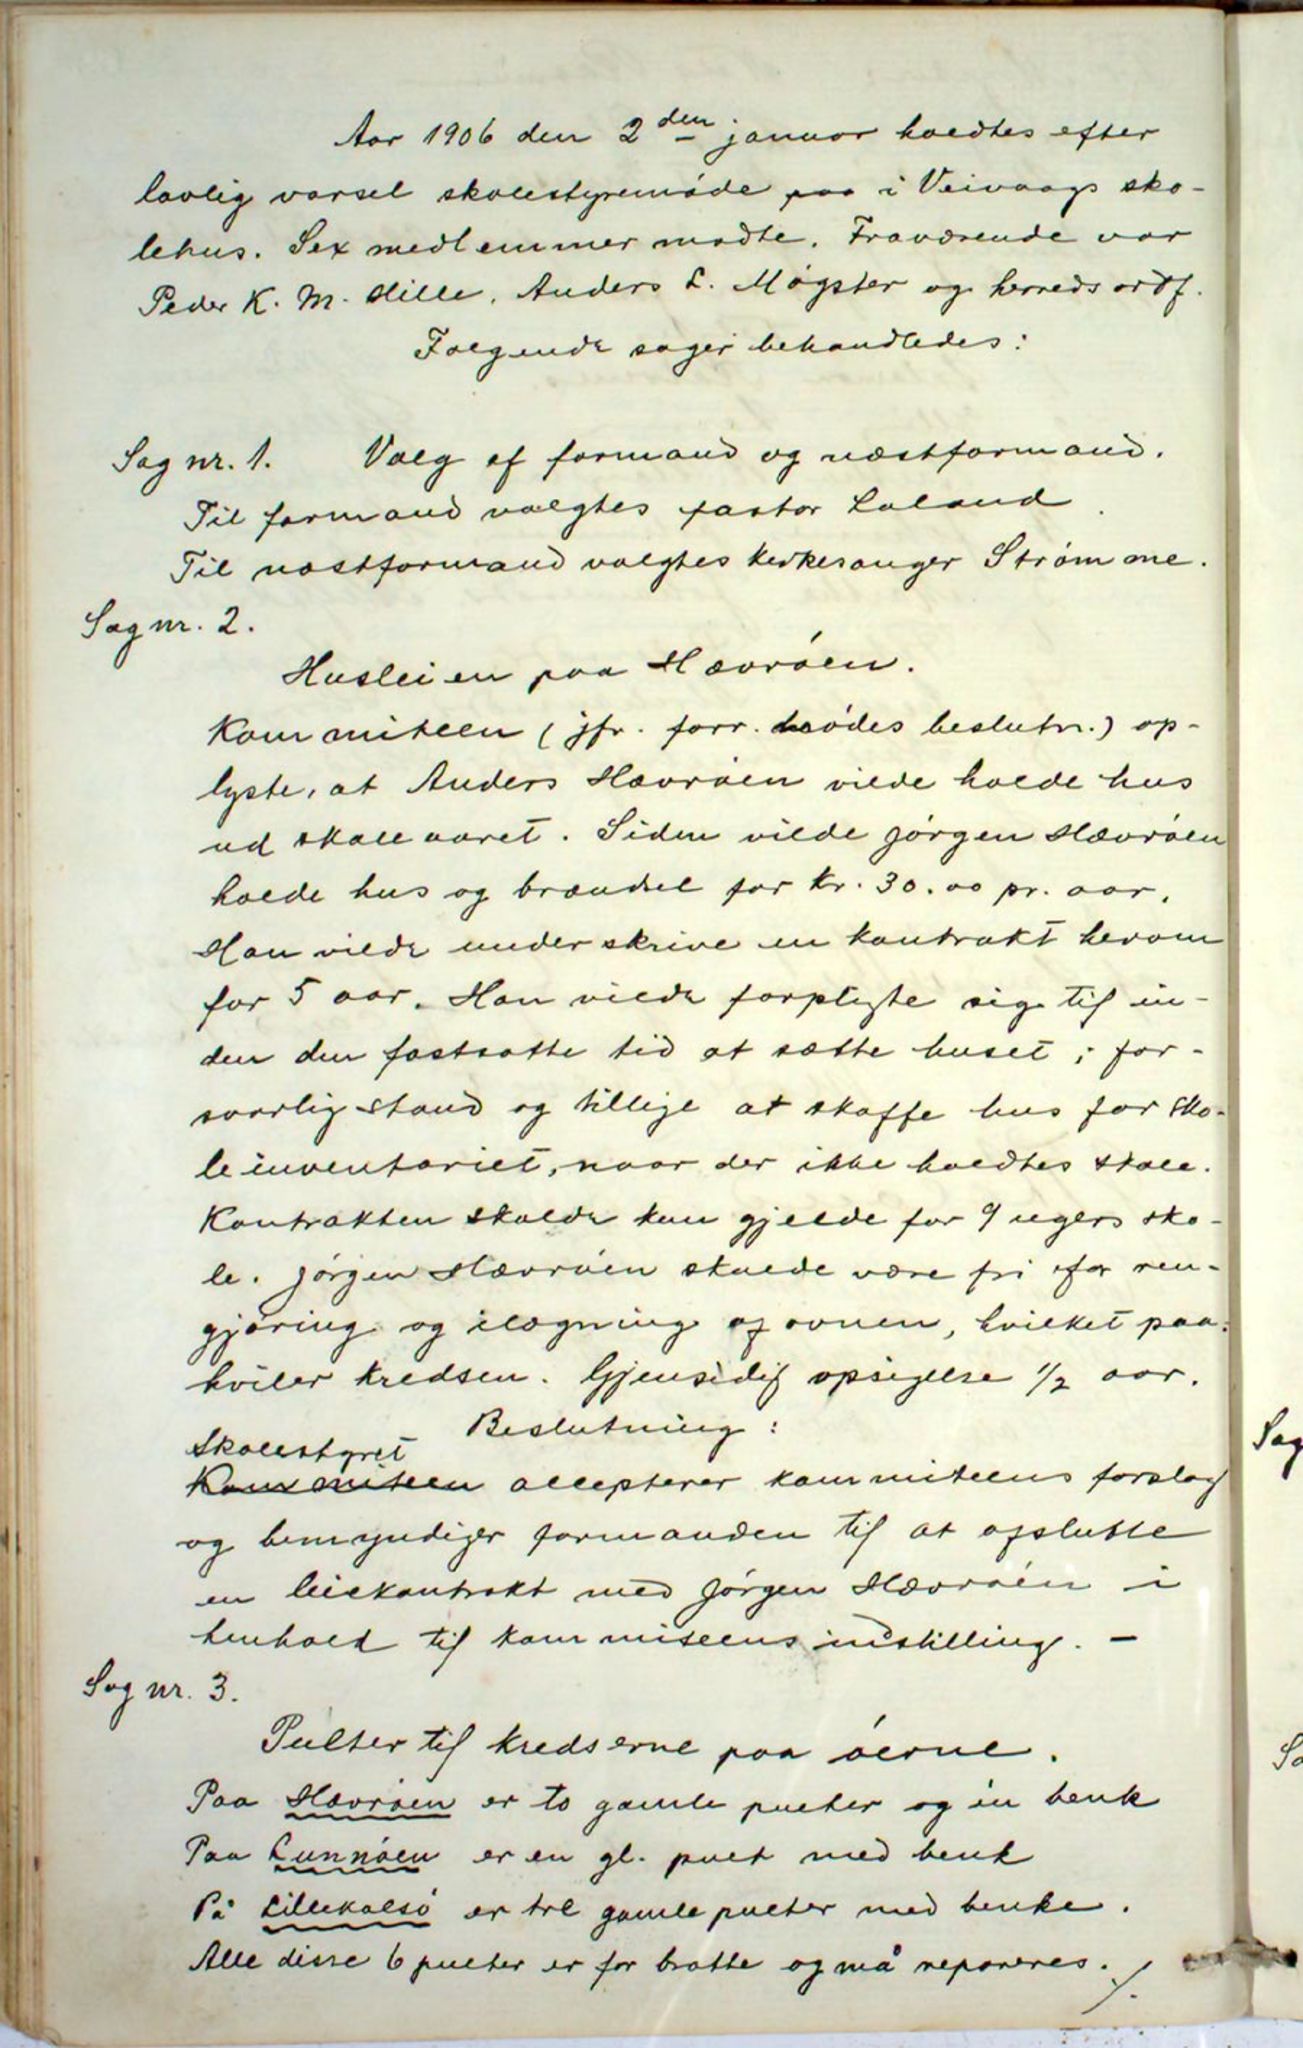 Aar 1906 den 2den januar holdtes efter
lovlig varsel skolestyremøde paa i Veivaags sko-
lehus. Sex medlemmer mødte. Fraværende var
Peder K. M. Hille, Anders L. Møgster og herredsordf.
Følgende sager behandledes:
Sag nr. 1. Valg af formand og næstformand.
Til formand valgtes pastor Laland.
Til næstformand valgtes kirkesanger Strømme.
Sag nr. 2.
Husleien paa Hævrøen.
Kommiteen (jfr. forr. mødes beslutn.) op-
lyste, at Anders Hævrøen vilde holde hus
ud skoleaaret. Siden vilde Jørgen Hævrøen
holde hus og brændsel for kr. 30.00 pr. aar.
Han vilde underskrive en kontrakt herom
for 5 aar. Han vilde forpligte sig til in-
den den fastsatte tid at sætte huset i for-
svarlig stand og tillige at skaffe hus for sko-
leinventariet, naar der ikke holdtes skole.
Kontrakten skulde kun gjelde for 9 ugers sko-
le. Jørgen Hævrøen skulde være fri for ren-
gjøring og ilægning af ovnen, hvilket paa-
hviler kredsen. Gjensidig opsigelse 1/2 aar.
Beslutning:
Skolestyret
Kommiteen accepterer kommiteens forslag
og bemyndiger formanden til at afslutte
en leiekontrakt med Jørgen Hævrøen i
henhold til kommiteens indstilling. —
Sag nr. 3.
Pulter til kredserne paa øerne.
Paa Hævrøen er to gamle pulter og én benk
Paa Lunnøen er en gl. pult med benk
På Lillekalsø er tre gamle pulter med benke.
Alle disse 6 pulter er for bratte og må repareres. ./.
Sag